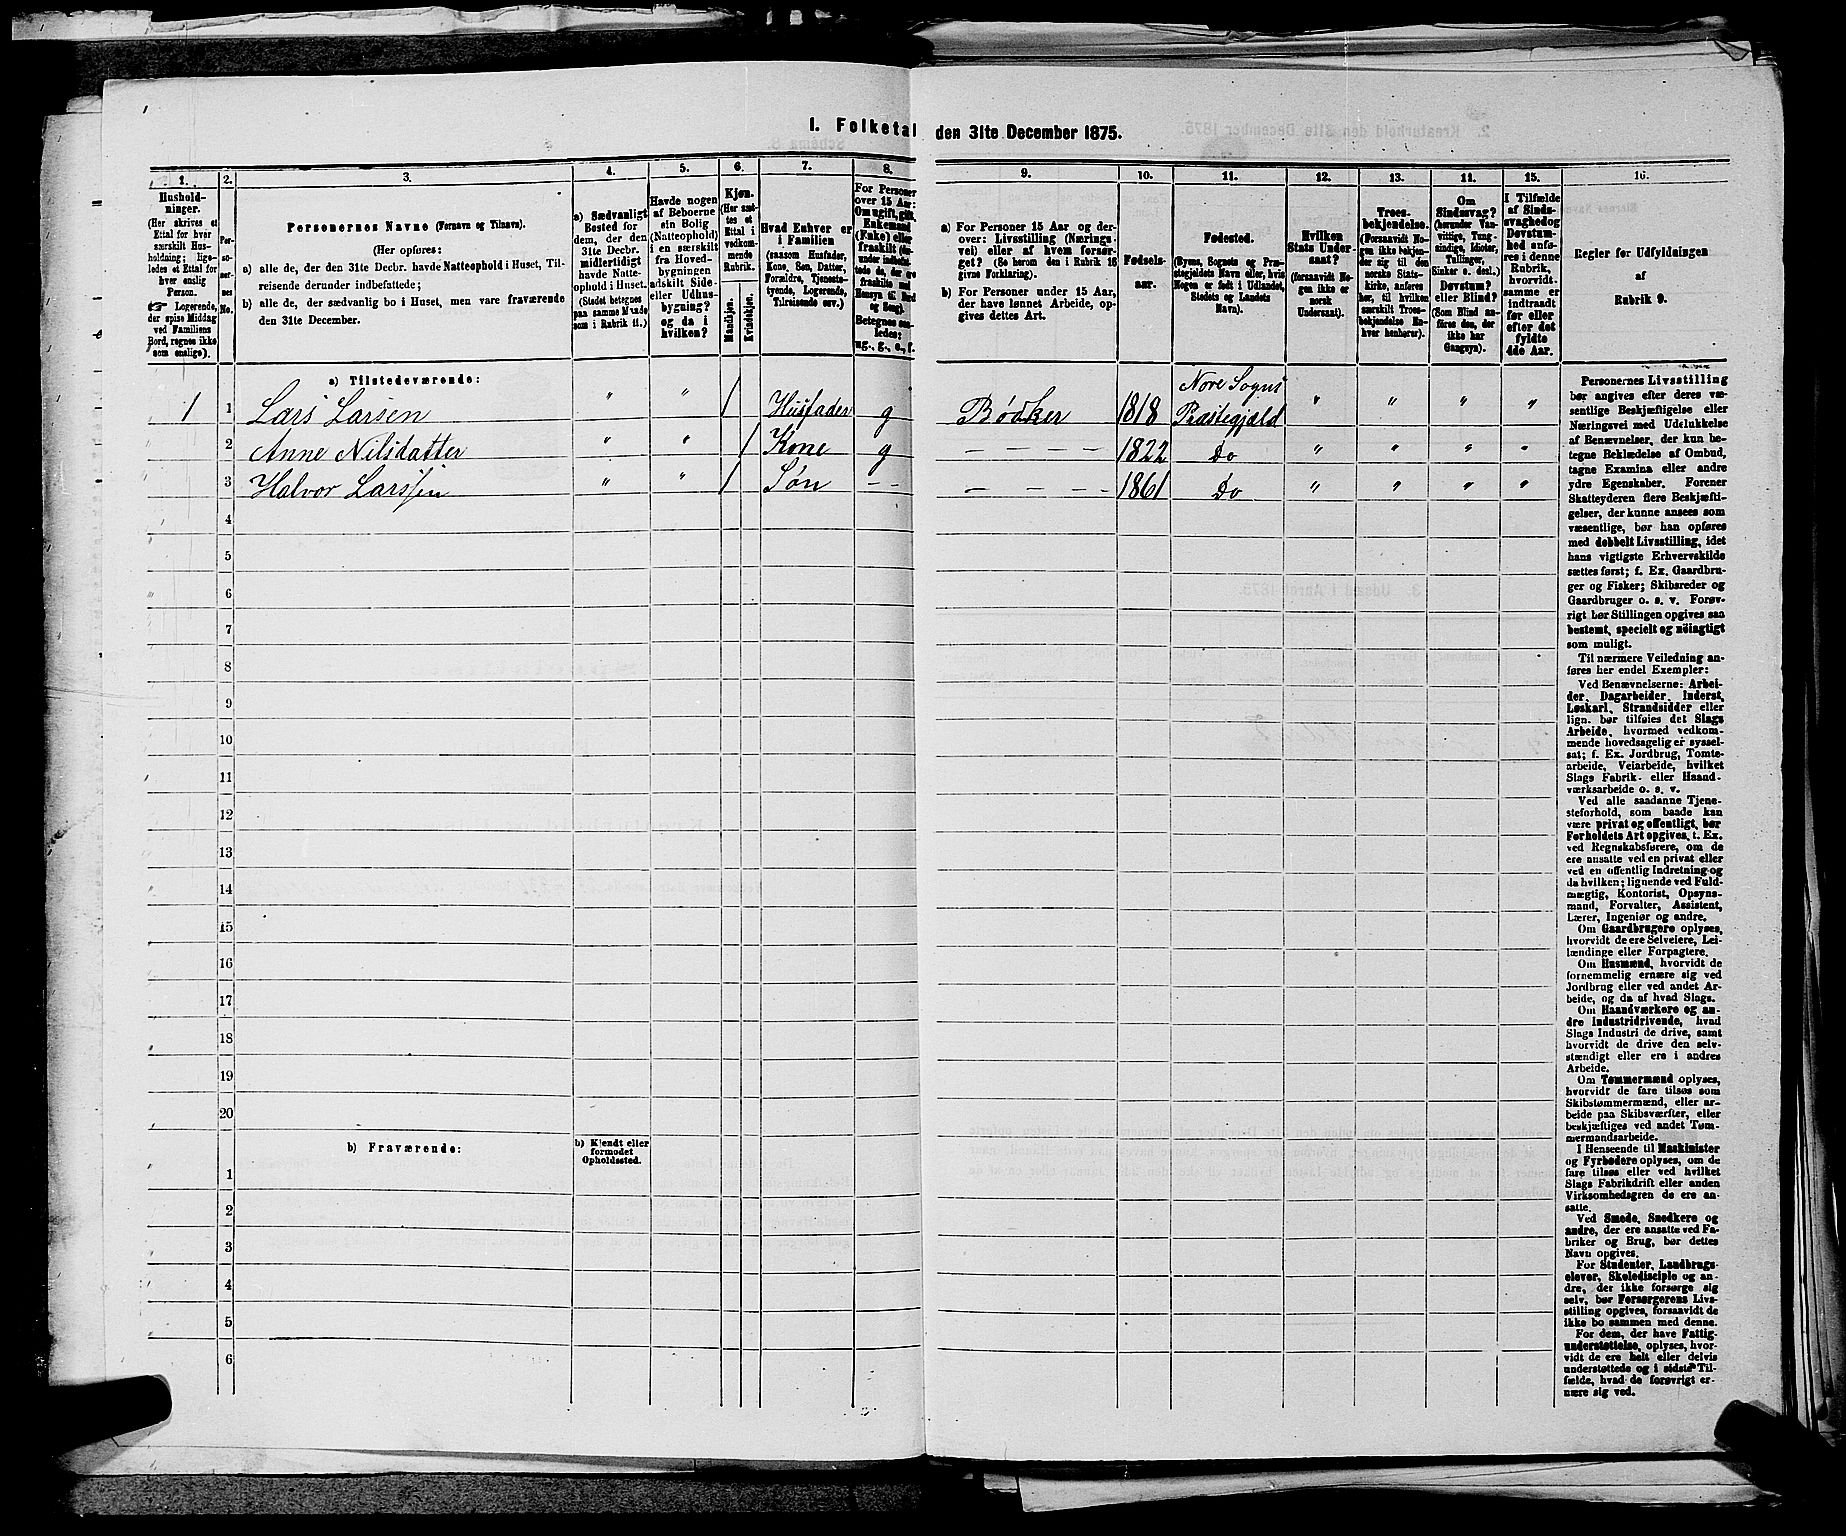 I. Folketal den 31te December 1875.
1.
Hushold-
ninger.
(Her skrives et
Ettal for hver
særskilt Hus-
holdning; lige-
ledes et Ettal for
hver enslig
Person.
Logerende,
der spise Middag
ved Familiens
Bord, regnes ikke
som enslige).
2.
Per-
so-
ner-
nes
No.
3.
Personernes Navne (Fornavn og Tilnavn).
(Her opføres:
a) alle de, der den 31te Decbr. havde Natteophold i Huset, Til-
reisende derunder indbefattede;
b) alle de, der sædvanlig bo i Huset, men vare fraværende
den 31te December.
4.
a) Sædvanligt
Bosted for
dem, der den
31te Decbr.
midlertidigt
havde Natte-
ophold i Huset.
(Stedet betegnes
paa samme Maade
som i Rubrik 11.)
5.
Havde nogen
af Beboerne
sin Bolig
(Natteophold)
i en særskilt
fra Hoved-
bygningen
adskilt Side-
eller Udhus-
bygning?
og da i
hvilken?
6.
Kjøn.
(Her sæt-
tes et
Ettal i
vedkom-
mende
Rubrik.
Mandkjøn.
Kvindekjøn.
7.
Hvad Enhver er
i Familien
(saasom Husfader,
Kone, Søn, Datter,
Forældre, Tjeneste-
tyende, Logerende,
Tilreisende osv.)
8.
For Personer
over 15 Aar:
Om ugift, gift,
Enkemand
(Enke) eller
fraskilt
Betegnes saa-
ledes:
ug., g., e., f.
9.
a) For Personer 15 Aar og der-
over: Livsstilling (Nærings-
vei) eller af hvem forsør-
get? (Se herom den i Rubrik 16
givne Forklaring).
b) For Personer under 15 Aar,
der have lønnet Arbeide, op-
gives dettes Art.
10.
Fødsels-
aar.
11.
Fødested.
(Byens, Sognets og Præ-
stegjeldets Navn eller, hvis
Nogen er født i Udlandet,
Stedets og Landets
Navn).
12.
Hvilken
Stats Under-
saat?
(forsaavidt No-
gen ikke er
norsk
Undersaat).
13.
Troes-
bekjendelse.
(Forsaavidt No-
gen ikke bekjen-
der sig til den
norske Stats-
kirke, anføres
her, til hvilken
særskilt Troes-
bekjendelse En-
hver henhører).
Om
Sindssvag?
(herunder Van-
vittige, Tung-
sindige, Idioter,
Tullinger,
Sinker o. desl.)
Døvstum?
eller Blind?
(Som Blind an-
føres den, der
ikke har
Gangsyn).
15.
I Tilfælde
af Sinds-
svaghed og
Døvstum-
hed anfø-
res i denne
Rubrik,
hvorvidt-
samme er
indtraadt
før eller
efter det
fyldte
4de Aar.
16.
Regler for Udfyldningen
af
Rubrik 9.
a) Tilstedeværende:
Nore Sogns
1 1 Lars Larsen " " 1 Husfader g Bødker 1818 Præstegjæld " " " "
2 Anne Nilsdatter " " 1 Kone g — — — — 1822 Do " " " "
3 Halvor Larssen " " 1 Søn — — — — — — 1861 Do " " " "
4
5
6
7
8
9
10
11
12
13
14
15
16
17
18
19
20
b) Fraværende:
b) Kjendt eller
formodet
Opholdssted.
1
2
3
4
5
6
Personernes Livsstilling
bør angives efter deres væ-
sentlige Beskjæftigelse eller
Næringsvei med Udelukkelse
af Benævnelser, der kun be-
tegne Beklædelse af Ombud,
tagne Examina eller andre
ydre Egenskaber. Forener
Skatteyderen flere Beskjæfti-
gelser, der kunne ansees som
væsentlige, bør han opføres
med dobbelt Livsstilling, idet
hans vigtigste Erhvervskilde
sættes først; f. Ex. Gaardbru-
ger og Fisker; Skibsreder og
Gaardbruger o. s. v. Forøv-
rigt bør Stillingen opgives saa
bestemt, specielt og nöiagtigt
som muligt.
Til nærmere Veiledning an-
føres her endel Exempler:
Ved Benævnelserne: Arbei-
der, Dagarbeider, Inderst,
Løskarl, Strandsidder eller
lign. bør tilføies det Slags
Arbeide, hvormed vedkom-
mende hovedsagelig er syssel-
sat; f. Ex. Jordbrug, Tomte-
arbeide, Veiarbeide, hvilket
Slags Fabrik- eller Haand-
værksarbeide o. s. v.
Ved alle saadanne Tjene-
steforhold, som baade kan
være privat og offentligt, bør
Forholdets Art opgives, t. Ex.
ved Regnskabsførere, om de
ere ansatte ved en privat eller
ved en offentlig Indretning og
da hvilken; lignende ved Fuld-
mægtig, Kontorist, Opsyns-
mand, Forvalter, Assistent,
Lærer, Ingeniør og andre.
Om Gaardbrugere oplyses,
hvorvidt de ere Selveiere, Lei-
lændinge eller Forpagtere.
Om Husmænd, hvorvidt de
fornemmelig ernære sig ved
Jordbrug eller ved andet Ar-
beide, og da af hvad Slags.
Om Haandværkere og an-
dre Industridrivende, hvad
Slags Industri de drive, samt
hvorvidt de drive den selv-
stændigt eller ere i andres
Arbeide.
Om Tømmermænd oplyses,
hvorvidt de fare tilsøs som
Skibstømmermænd, eller ar-
beide paa Skibsværfter, eller
beskjæftiges ved andet Tøm-
mermandsarbeide.
I Henseende til Maskinister
og Fyrbødere oplyses, om de
fare tilsøs eller ved hvilket
Slags Fabrikdrift eller anden
Virksomhedsgren de ere an-
satte.
Ved Smede, Snedkere og
andre, der ere ansatte ved Fa-
briker og Brug, bør dettes
Navn opgives.
For Studenter, Landbrugs-
elever, Skoledisciple og an-
dre, der ikke forsørge sig
selv, bør Forsørgerens Livs-
stilling opgives, forsaavidt de
ikke bo sammen med denne.
For dem, der have Fattig-
understøttelse, oplyses, hvor-
vidt de ere helt eller delvis
understøttede og i sidste Til-
fælde, hvad de forøvrigt er-
nære sig ved.